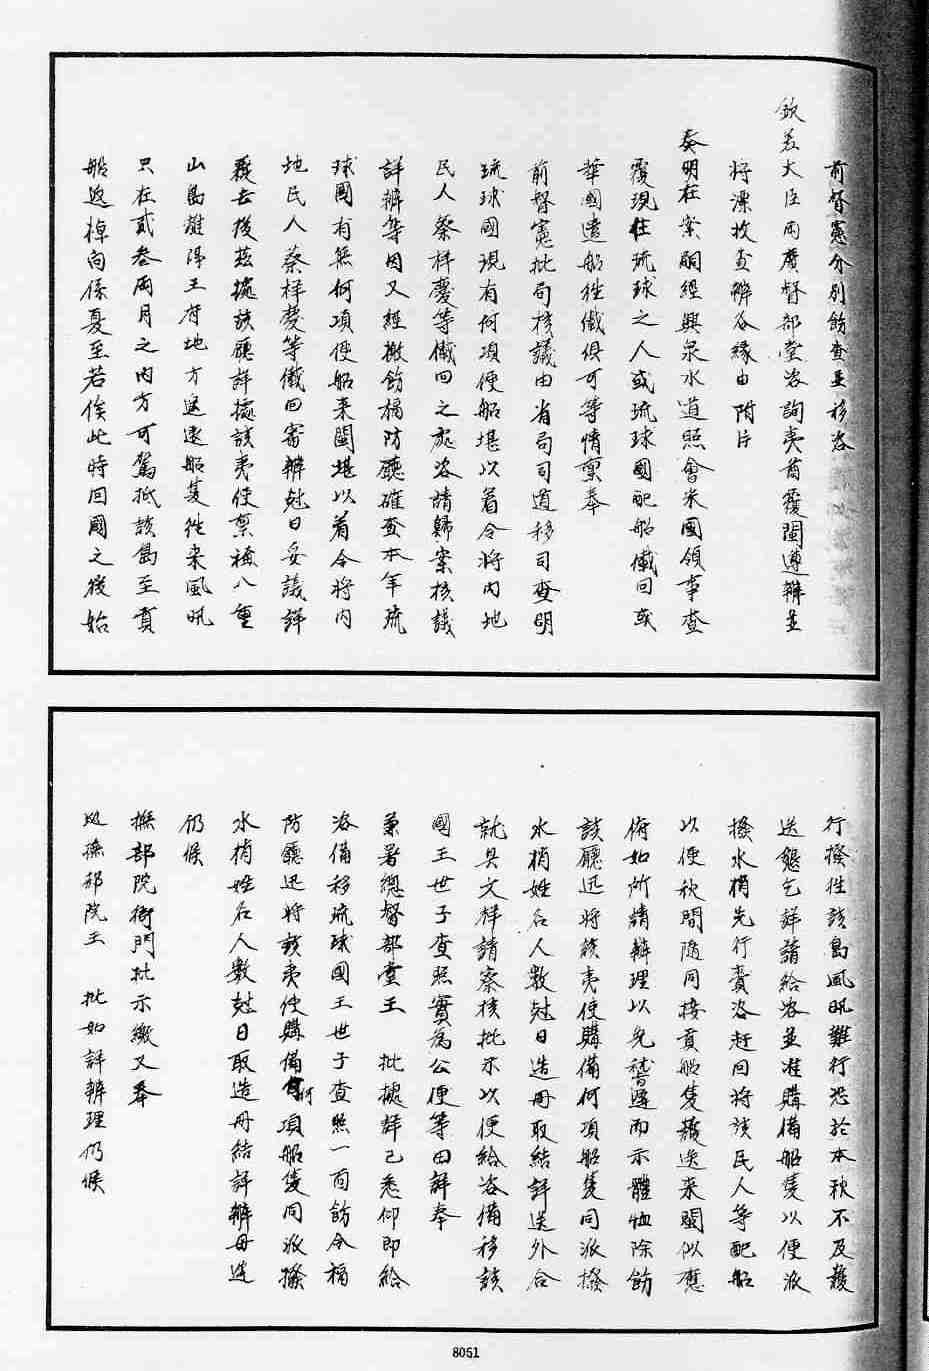 前督憲分別飭查並移咨
欽差大臣兩廣督部堂咨詢夷酋覆閩遵辦並
將漂收查解各緣由附片
奏明在案嗣經興泉永道照會米國領事查
覆現住琉球之人或琉球國配船儎回或
華國遣船往儎俱可等情稟奉
前督憲批局核議由省局司道移司查明
琉球國現有何項便船堪以着令將內地
民人蔡祥慶等儎回之處咨請歸案核議
詳辦等因又經檄飭福防廳確查本年琉
球國有無何項便船來閩堪以着令將內
地民人蔡祥慶等儎回審辦尅日妥議詳
覆去後茲據該廳詳據該夷使稟稱八重
山島離得王府地方寔遠船隻往來風汛
只在貳叁兩月之內方可駕抵該島至貢
船返棹向係夏至若俟此時回國之後始
行撥往該島風汛難行恐於本秋不及護
送懇乞詳請給咨並准購備船隻以便派
撥水梢先行賫咨赶回將該民人等配船
以便秋間隨同接貢船隻護送來閩似應
俯如所請辦理以免稽遲而示體恤除飭
該廳迅將該夷使購備何項船隻同派撥
水梢姓名人數尅日造冊取結詳送外合
就具文祥請察核批示以便給咨備移該
國王世子查照實為公便等由詳奉
兼署總督部堂王 批據詳已悉仰即給
咨備移琉球國王世子查照一面飭令福
防廳迅將該夷使購備何項船隻同派撥
水梢姓名人數尅日取造冊結詳辦毋遲
仍候
撫部院衙門批示繳又奉
廵撫部院王 批如詳辦理仍候
8051